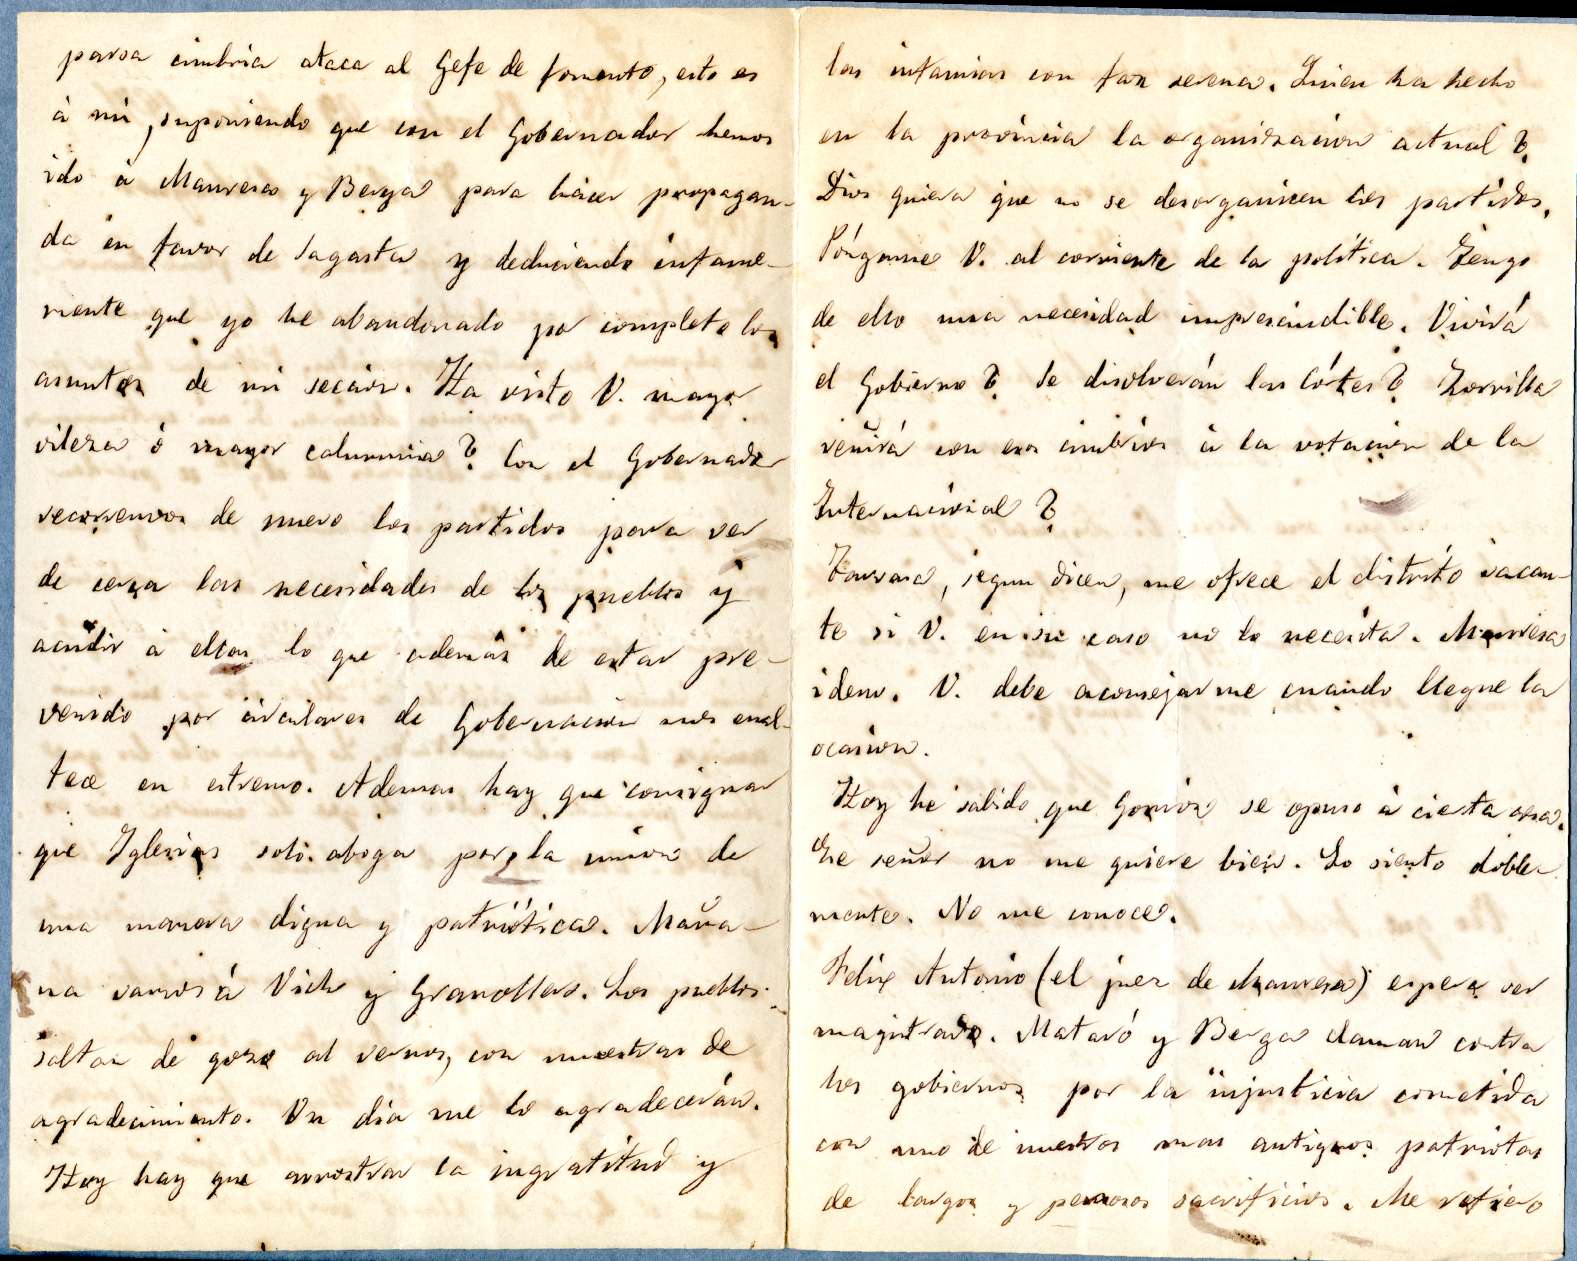 parsa cimbria ataca al Gefe de fomento, esto es
á mí, suponiendo que con el Gobernador hemos
ido á Manresa y Berga para hacer propagan-
da en favor de Sagasta y deduciendo infame-
mente que yo he abandonado por completo los
asuntos de mi seccion. Ha visto V. mayor
vileza ó mayor calumnia? Con el Gobernador
recorremos de nuevo los partidos para ver
de cerca las necesidades de los pueblos y
acudir á ellas lo que además de estar pre-
venido por circulares de Gobernacion nos enal-
tece en estremo. Ademas hay que consignar
que Iglesias solo aboga por la union de
una manera digna y patriótica. Maña-
na vamos á Vich y Granollers. Los pueblos
saltan de gozo al vernos, con muestras de
agradecimiento. Un dia me lo agradecerán.
Hoy hay que arrostrar la ingratitud y
las infamias con faz serena. Quien ha hecho
en la provincia la organizacion actual?
Dios quiera que no se desorganicen los partidos.
Póngame V. al corriente de la política. Tengo
de ello una necesidad imprescindible. Vivirá
el Gobierno? Se disolverán las Córtes? Zorrilla
reñirá con esos cimbrios á la votacion de la
Internacional?
Tarrasa, segun dicen, me ofrece el distrito vacan-
te si V. en su caso no lo necesita. Manresa
idem. V. debe aconsejarme cuando llegue la
ocasion.
Hoy he sabido que se opuso á cierta cosa.
Ese señor no me quiere bien. Lo siento doble-
mente. No me conoce.
Felix Antonio (el juez de Manresa) espera ser
magistrado. Mataró y Berga claman contra
los gobiernos por la injusticia cometida
con uno de nuestros mas antiguos patriotas
de largos y penosos sacrificios. Me refiero